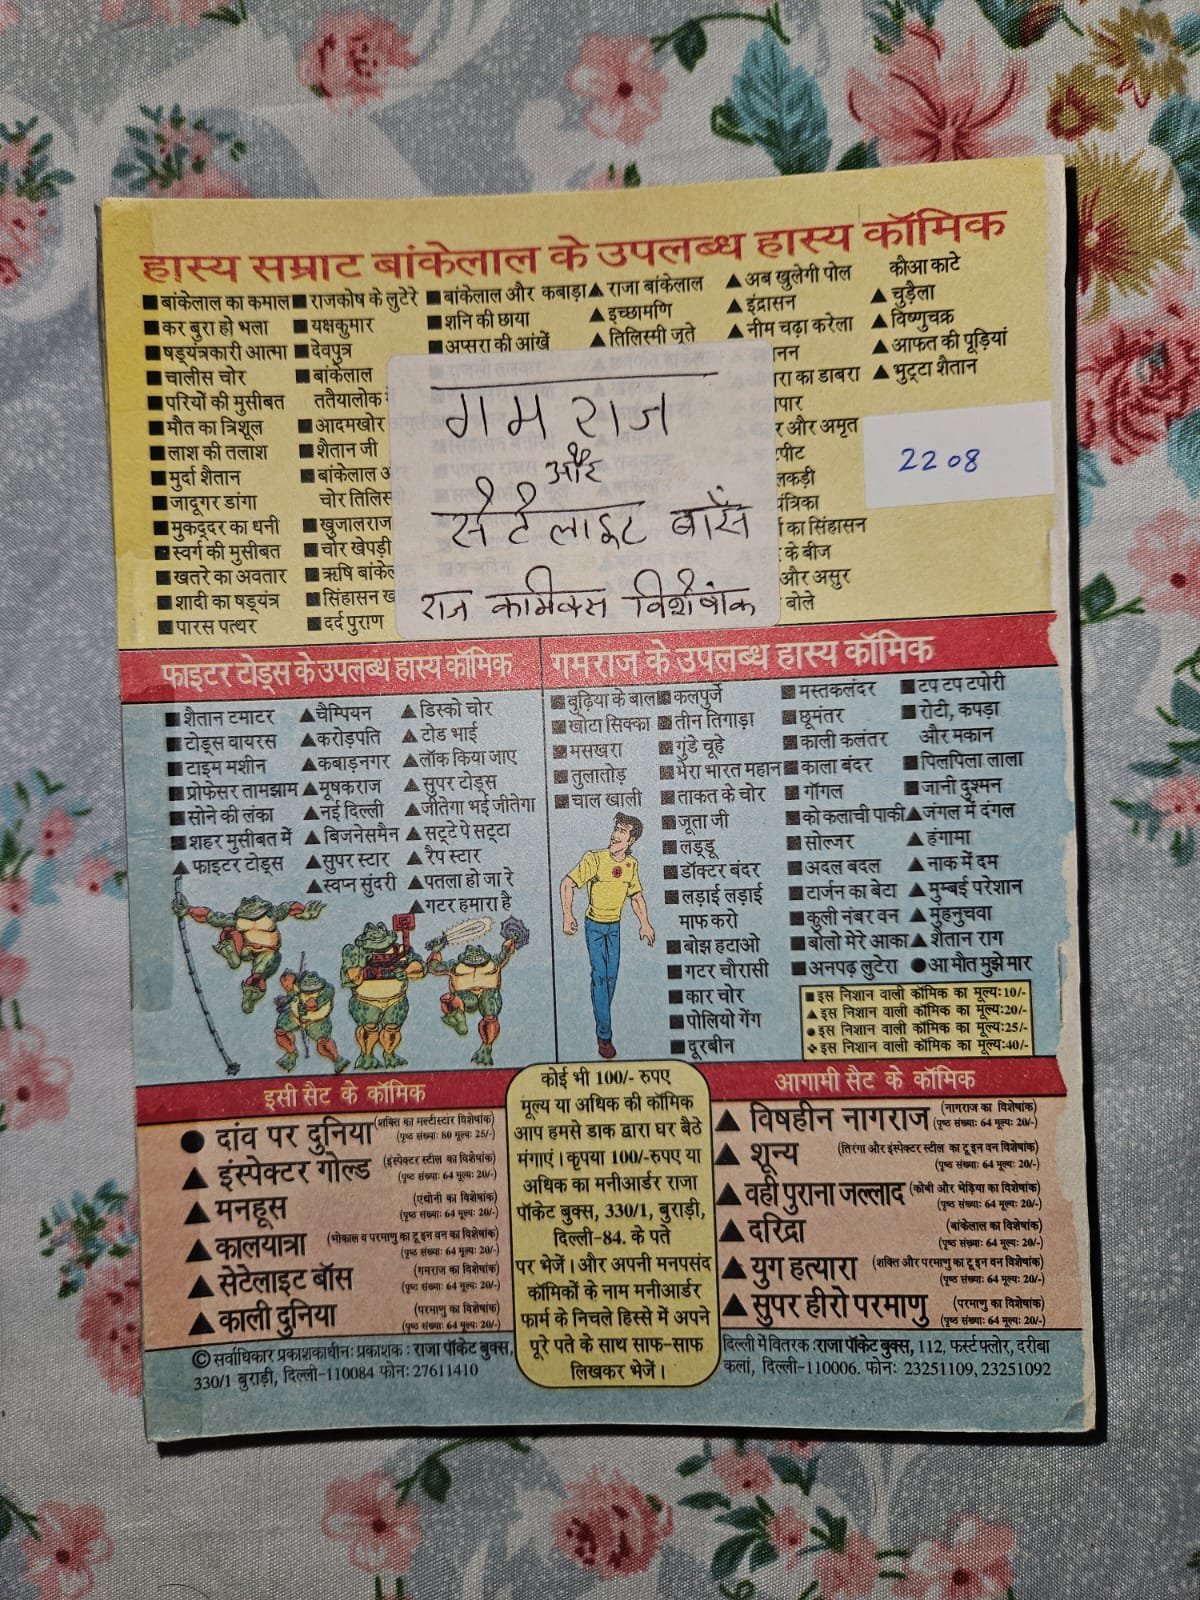 हास्य सम्राट बांकेलाल के उपलब्ध हास्य कॉमिक
■ बांकेलाल का कमाल
■ कर बुरा हो भला
■ षड्यंत्रकारी आत्मा
■ चालीस चोर
■ परियों की मुसीबत
■ मौत का त्रिशूल
■ लाश की तलाश
■ मुर्दा शैतान
■ जादूगर डांगा
■ मुकद्दर का धनी
■ स्वर्ग की मुसीबत
■ खतरे का अवतार
■ शादी का षड्यंत्र
■ पारस पत्थर
■ राजकोष के लुटेरे
■ यक्षकुमार
■ देवपुत्र
■ बांकेलाल
ततैयालोक
■ आदमखोर
■ शैतान जी
■ बांकेलाल
चोर तिलिस्
■ खुजालराज
■ चोर खेपड़ी
■ ऋषि बांके
■ सिंहासन ख
■ दर्द पुराण
■ बांकेलाल और कबाड़ा
■ शनि की छाया
■ अप्सरा की आंखें
▲ राजा बांकेलाल
▲ इच्छामणि
▲ तिलिस्मी जूते
▲ अब खुलेगी पोल
▲ इंद्रासन
▲ नीम चढ़ा करेला
नन
रा का डाबरा
पार
र और अमृत
पीट
लकड़ी
यंत्रिका
का सिंहासन
के बीज
और असुर
बोले
कौआ काटे
▲ चुड़ैला
▲ विष्णुचक्र
▲ आफत की पूड़ियां
▲ भुट्टा शैतान
गमराज
और
सैटेलाइट बॉस
राज कामिक्स विशेषांक
2208
फाइटर टोड्स के उपलब्ध हास्य कॉमिक
■ शैतान टमाटर
■ टोड्स वायरस
■ टाइम मशीन
■ प्रोफेसर तामझाम
■ सोने की लंका
■ शहर मुसीबत में
▲ फाइटर टोड्स
▲ चैम्पियन
▲ करोड़पति
▲ कबाड़नगर
▲ मूषकराज
▲ नई दिल्ली
▲ बिजनेसमैन
▲ सुपर स्टार
▲ स्वप्न सुंदरी
▲ डिस्को चोर
▲ टोड भाई
▲ लॉक किया जाए
▲ सुपर टोड्स
▲ जीतेगा भई जीतेगा
▲ सट्टे पे सट्टा
▲ रैप स्टार
▲ पतला हो जा रे
▲ गटर हमारा है
गमराज के उपलब्ध हास्य कॉमिक
■ बुढ़िया के बाल
■ खोटा सिक्का
■ मसखरा
■ तुलातोड़
■ चाल खाली
■ कलपुर्जे
■ तीन तिगाड़ा
■ गुंडे चूहे
■ मेरा भारत महान
■ ताकत के चोर
■ जूता जी
■ लड्डू
■ डॉक्टर बंदर
■ लड़ाई लड़ाई
माफ करो
■ बोझ हटाओ
■ गटर चौरासी
■ कार चोर
■ पोलियो गेंग
■ दूरबीन
■ मस्तकलंदर
■ छूमंतर
■ काली कलंतर
■ काला बंदर
■ गॉगल
■ को कलाची पाकी
■ सोल्जर
■ अदल बदल
■ टार्जन का बेटा
■ कुली नंबर वन
■ बोलो मेरे आका
■ अनपढ़ लुटेरा
■ टप टप टपोरी
■ रोटी, कपड़ा
और मकान
■ पिलपिला लाला
■ जानी दुश्मन
▲ जंगल में दंगल
▲ हंगामा
▲ नाक में दम
▲ मुम्बई परेशान
▲ मुंहनुचवा
▲ शैतान राग
● आ मौत मुझे मार
■ इस निशान वाली कॉमिक का मूल्य:10/-
▲ इस निशान वाली कॉमिक का मूल्य:20/-
● इस निशान वाली कॉमिक का मूल्य:25/-
✤ इस निशान वाली कॉमिक का मूल्य:40/-
इसी सैट के कॉमिक
● दांव पर दुनिया (शक्ति का मल्टीस्टार विशेषांक)
(पृष्ठ संख्या: 80 मूल्य: 25/-)
▲ इंस्पेक्टर गोल्ड (इंस्पेक्टर स्टील का विशेषांक)
(पृष्ठ संख्या: 64 मूल्य: 20/-)
▲ मनहूस (एंथोनी का विशेषांक)
(पृष्ठ संख्या: 64 मूल्य: 20/-)
▲ कालयात्रा (भोकाल व परमाणु का टू इन वन का विशेषांक)
(पृष्ठ संख्या: 64 मूल्य: 20/-)
▲ सेटेलाइट बॉस (गमराज का विशेषांक)
(पृष्ठ संख्या: 64 मूल्य: 20/-)
▲ काली दुनिया (परमाणु का विशेषांक)
(पृष्ठ संख्या: 64 मूल्य: 20/-)
कोई भी 100/- रुपए
मूल्य या अधिक की कॉमिक
आप हमसे डाक द्वारा घर बैठे
मंगाएं। कृपया 100/-रुपए या
अधिक का मनीआर्डर राजा
पॉकेट बुक्स, 330/1, बुराड़ी,
दिल्ली-84. के पते
पर भेजें। और अपनी मनपसंद
कॉमिकों के नाम मनीआर्डर
फार्म के निचले हिस्से में अपने
पूरे पते के साथ साफ-साफ
लिखकर भेजें।
आगामी सैट के कॉमिक
▲ विषहीन नागराज (नागराज का विशेषांक)
(पृष्ठ संख्या: 64 मूल्य: 20/-)
▲ शून्य (तिरंगा और इंस्पेक्टर स्टील का टू इन वन विशेषांक)
(पृष्ठ संख्या: 64 मूल्य: 20/-)
▲ वही पुराना जल्लाद (कोबी और भेड़िया का विशेषांक)
(पृष्ठ संख्या: 64 मूल्य: 20/-)
▲ दरिद्रा (बांकेलाल का विशेषांक)
(पृष्ठ संख्या: 64 मूल्य: 20/-)
▲ युग हत्यारा (शक्ति और परमाणु का टू इन वन विशेषांक)
(पृष्ठ संख्या: 64 मूल्य: 20/-)
▲ सुपर हीरो परमाणु (परमाणु का विशेषांक)
(पृष्ठ संख्या: 64 मूल्य: 20/-)
© सर्वाधिकार प्रकाशकाधीन: प्रकाशक : राजा पॉकेट बुक्स,
330/1 बुराड़ी, दिल्ली-110084 फोन: 27611410
दिल्ली में वितरक : राजा पॉकेट बुक्स, 112, फर्स्ट फ्लोर, दरीबा
कलां, दिल्ली-110006. फोन: 23251109, 23251092